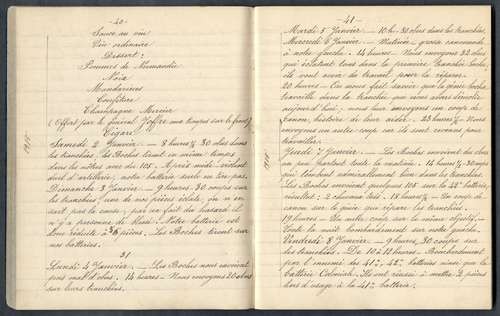 - 40 -
Sauce au vin
Vin ordinaire
Dessert :
Pommes de Normandie
Noix
Mandarines
Confiture
Champagne Mercier
( Offert par le général Joffre aux troupes sur le front)
Cigare
Samedi 2 Janvier. — 8 heures ½ 30 obus dans
les tranchées. Les Boches tirent en même temps
dans les nôtres avec des 105. Après midi violent
duel d'artillerie, notre batterie seule en tire pas.
Dimanche 3 Janvier. — 9 heures. 30 coups sur
les tranchées, une de nos pièces éclate, on n'en
sait pas la cause, par un fait du hasard il
n'y a personne de blessé. Notre batterie est
donc réduite à 3 pièces. Les Boches tirent sur
nos batteries.
31
Lundi 4 Janvier. — Les Boches nous envoient
pas mal d'obus. 14 heures - Nous envoyons 20 obus
sur leurs tranchées.
1915
- 41 -
Mardi 5 Janvier — 10 h. 30 obus dans les tranchées.
Mercredi 6 Janvier. — Matinée, grosse canonnade
à notre gauche. 14 heures. Nous envoyons 32 obus
qui éclatent tous dans la première tranchée boche,
ils vont avoir du travail pour la réparer.
20 heures - On nous fait savoir que le génie boche
travaille dans la tranchée que nous avons démolie
aujourd'hui, nous leur envoyons un coup de
canon, histoire de leur aider. 23 heures ½ - Nous
envoyons un autre coup car ils sont revenus pour
travailler.
Jeudi 7 Janvier. — Les Boches envoient des obus
un peu partout toute la matinée. 14 heures ½ - 30 coups
qui tombent admirablement bien dans les tranchées.
Les Boches envoient quelques 105 sur la 42e batterie,
résultat : 2 chevaux tués. 18 heures ½ — Un coup de
canon sur le génie qui répare les tranchées.
19 heures - Un autre coup sur le même objectif. -
Toute la nuit bombardement sur notre gauche.
Vendredi 8 Janvier. — 9 heures 30 coups sur
les tranchées. — De 10 à 11 heures - Bombardement
par l'ennemi des 41e, 42e batteries ainsi que la
batterie Coloniale. Ils ont réussi à mettre 2 pièces
hors d'usage à la 41e batterie.
1915